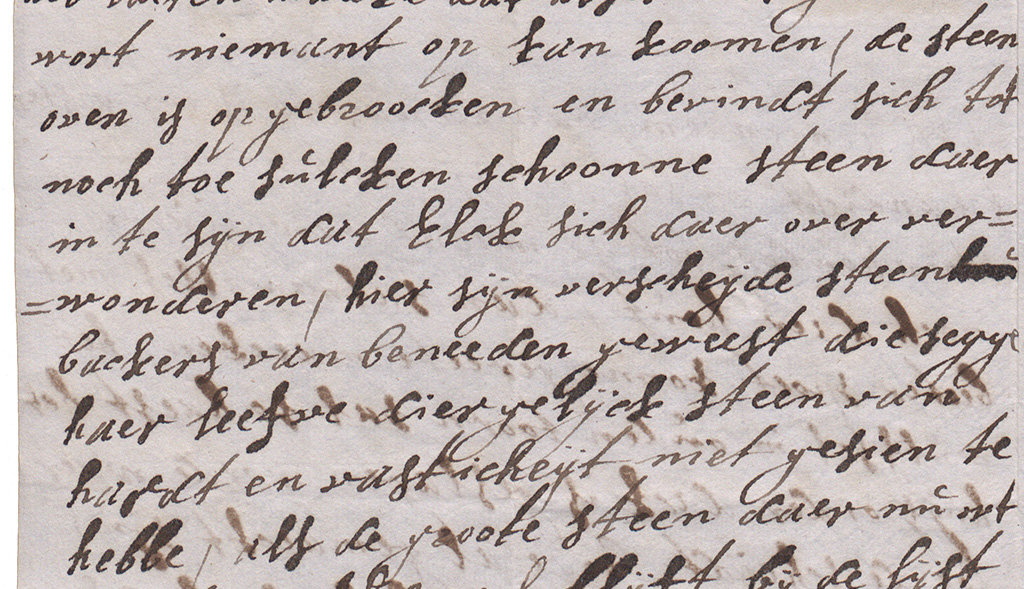 wort niemant op kan koomen, de steen
oven is op gebroocken en bevindt sich tot
noch toe sulcken schoonne steen daer
in te sijn dat Elck sich daer over ver=
=wonderen, hier sijn verscheijde steen
backers van beneeden geweest die segge
haer leefve diergelijck steen van
hardt en vasticheijt niet gesien te
hebbe, als de groote steen daer nu
bij de lijst